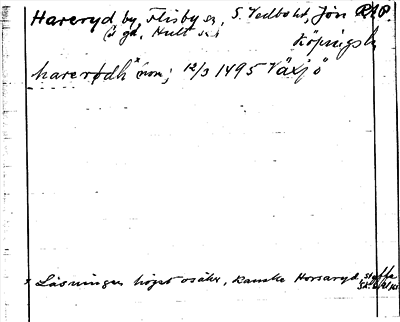 Hareryd by, Flisby sn, S. Vedbo hd, Jön RAP.
(3 gd, Hult sn)
Köpingsbr
harerødh x nom; 12/3 1495 Växjö
x Läsningen högst osäker, kanske Horsaryd,